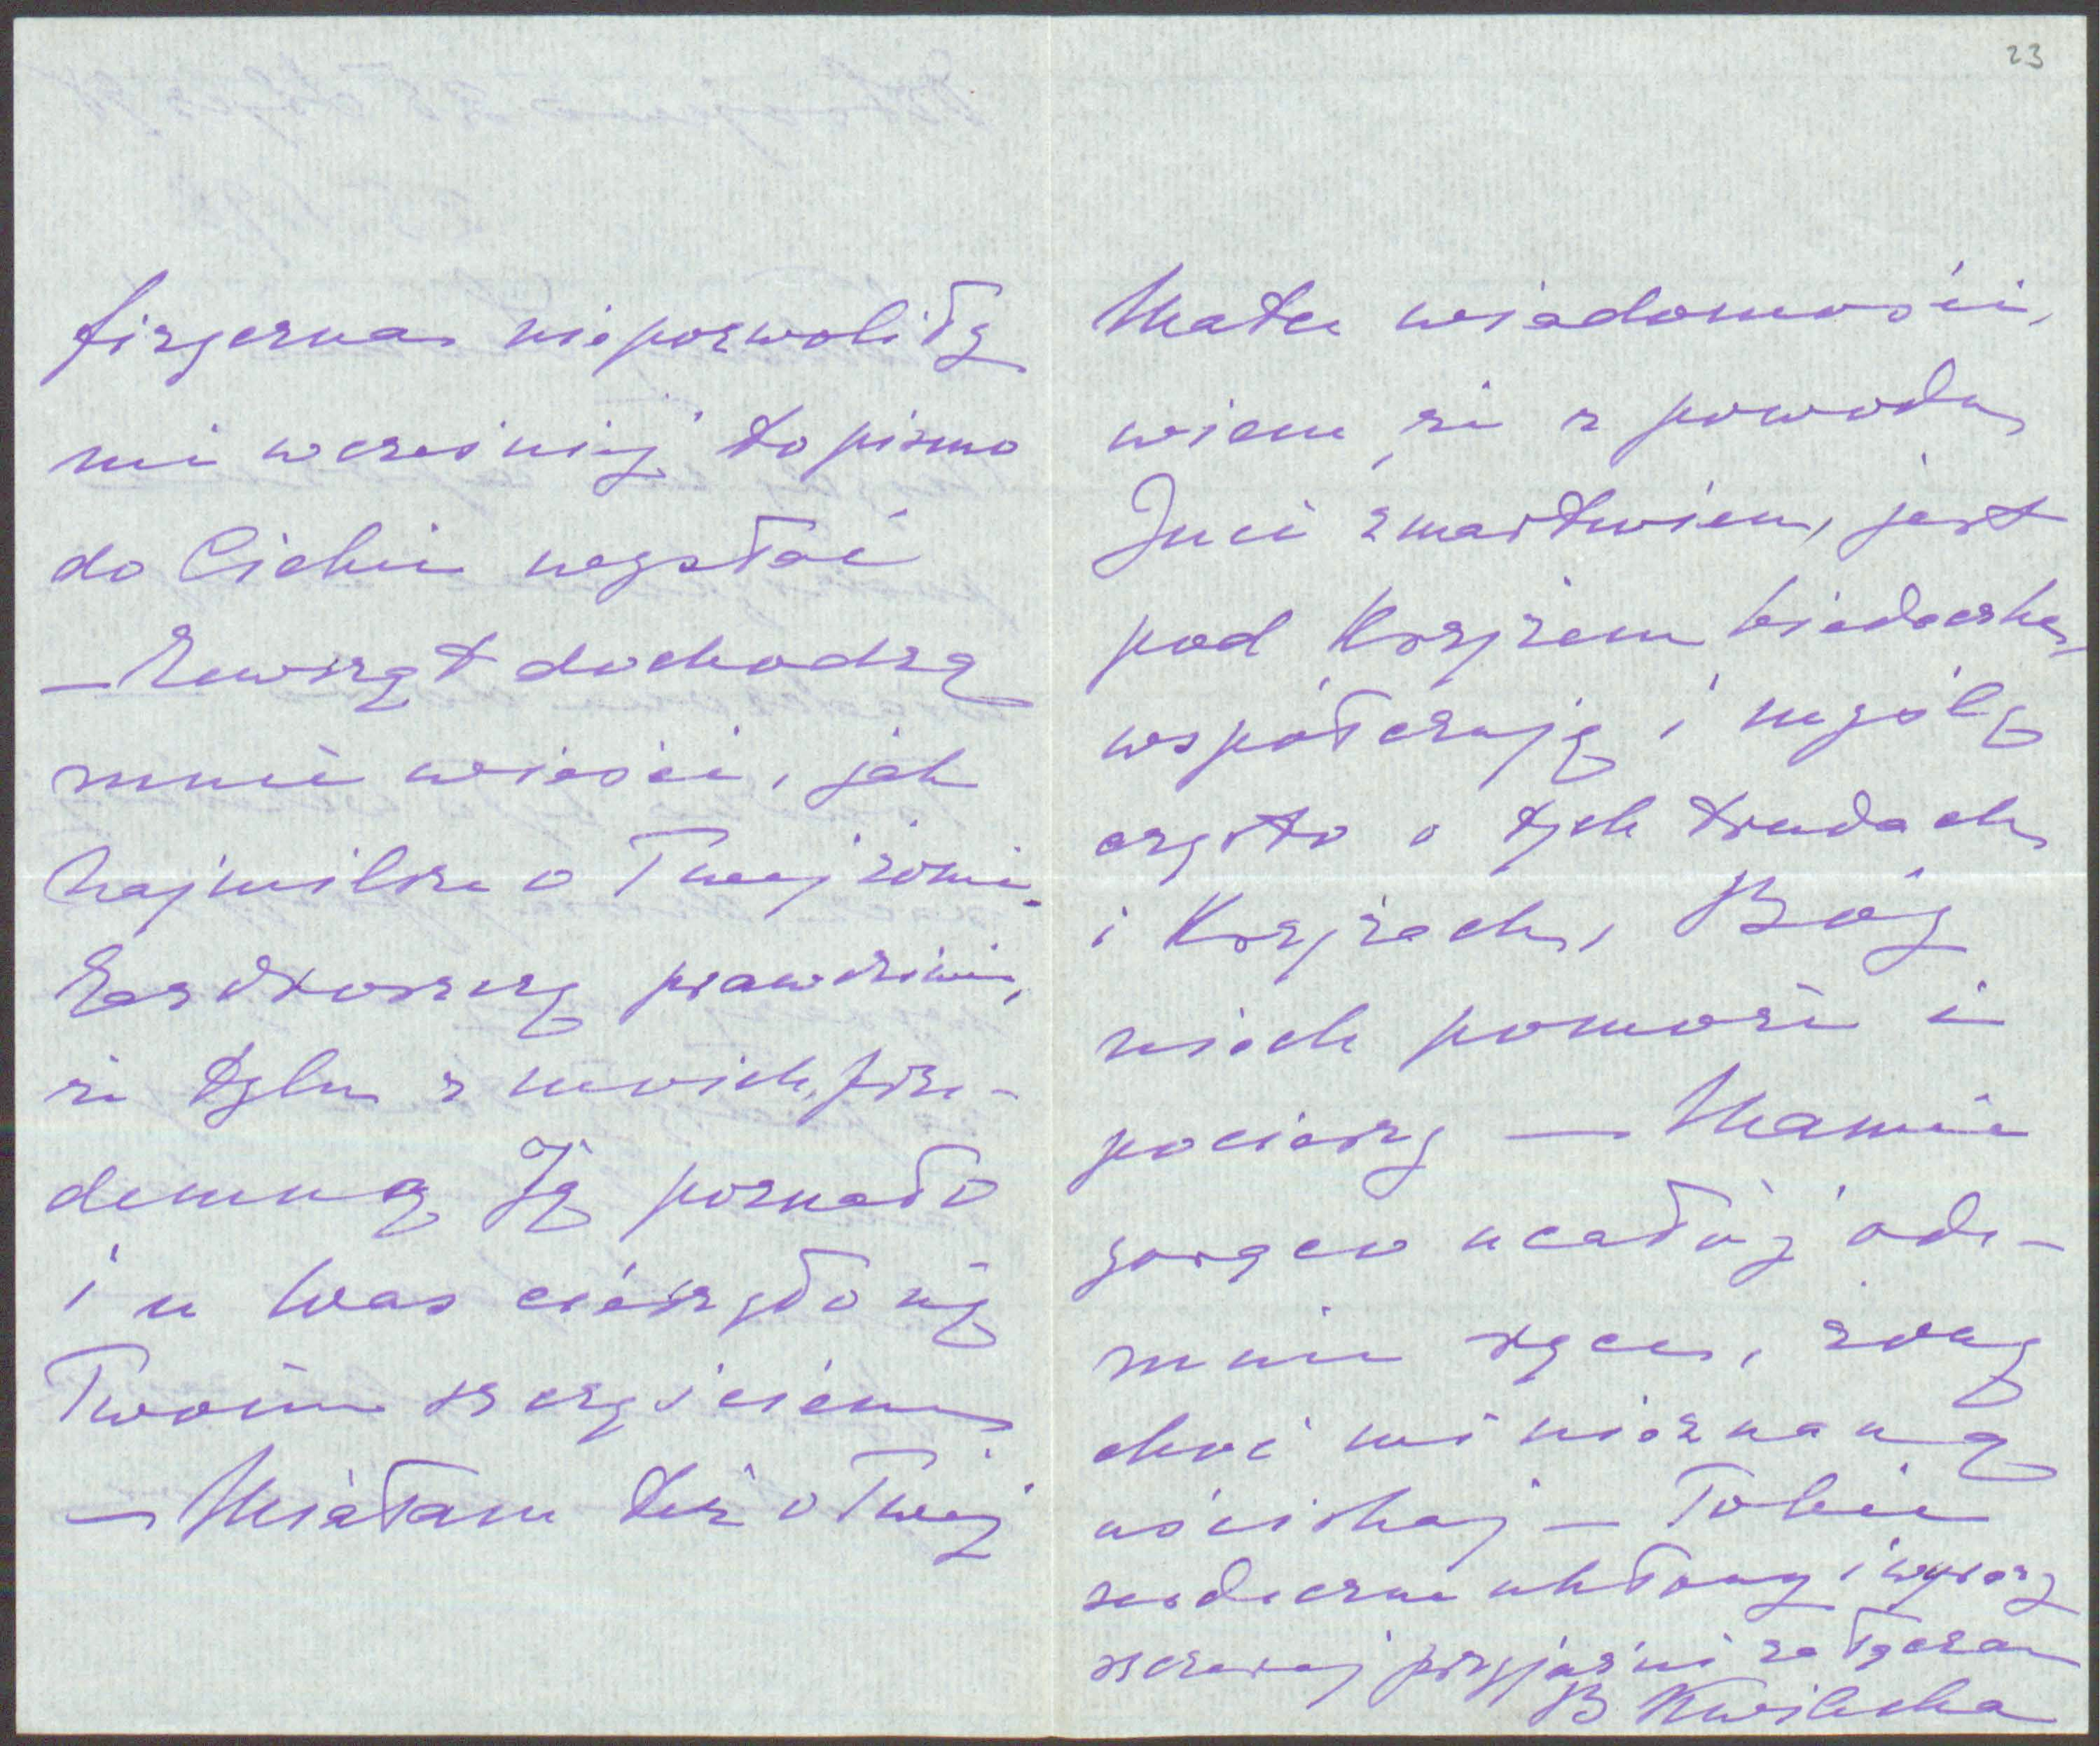 fizyczna niepozwoliły
mi wcześniej to pismo
do Ciebie wysłać
— Zewsząt dochodzą
mnie wieści, jak
najmilsze o Twej żonie
Zazdroszczę prawdziwie,
że tylu z moich prze-
demną Ją poznało
i u Was cieszyło się
Twoim szczęściem
— Miałam też o Twej
23
Matce wiadomości,
wiem, że z powodu
Inci zmartwień, jest
pod Krzyżem biedaczka,
współczuję i myślę
często o tych trudach
i Krzyżach, Bóg
niech pomoże i
pocieszy — Mamie
gorąco ucałuj ode-
mnie ręce, żonę
choć mi nieznaną
uściskaj — Tobie
serdeczne ukłony i wyrazy
szczerej przyjaźni załączam
B Kwilecka